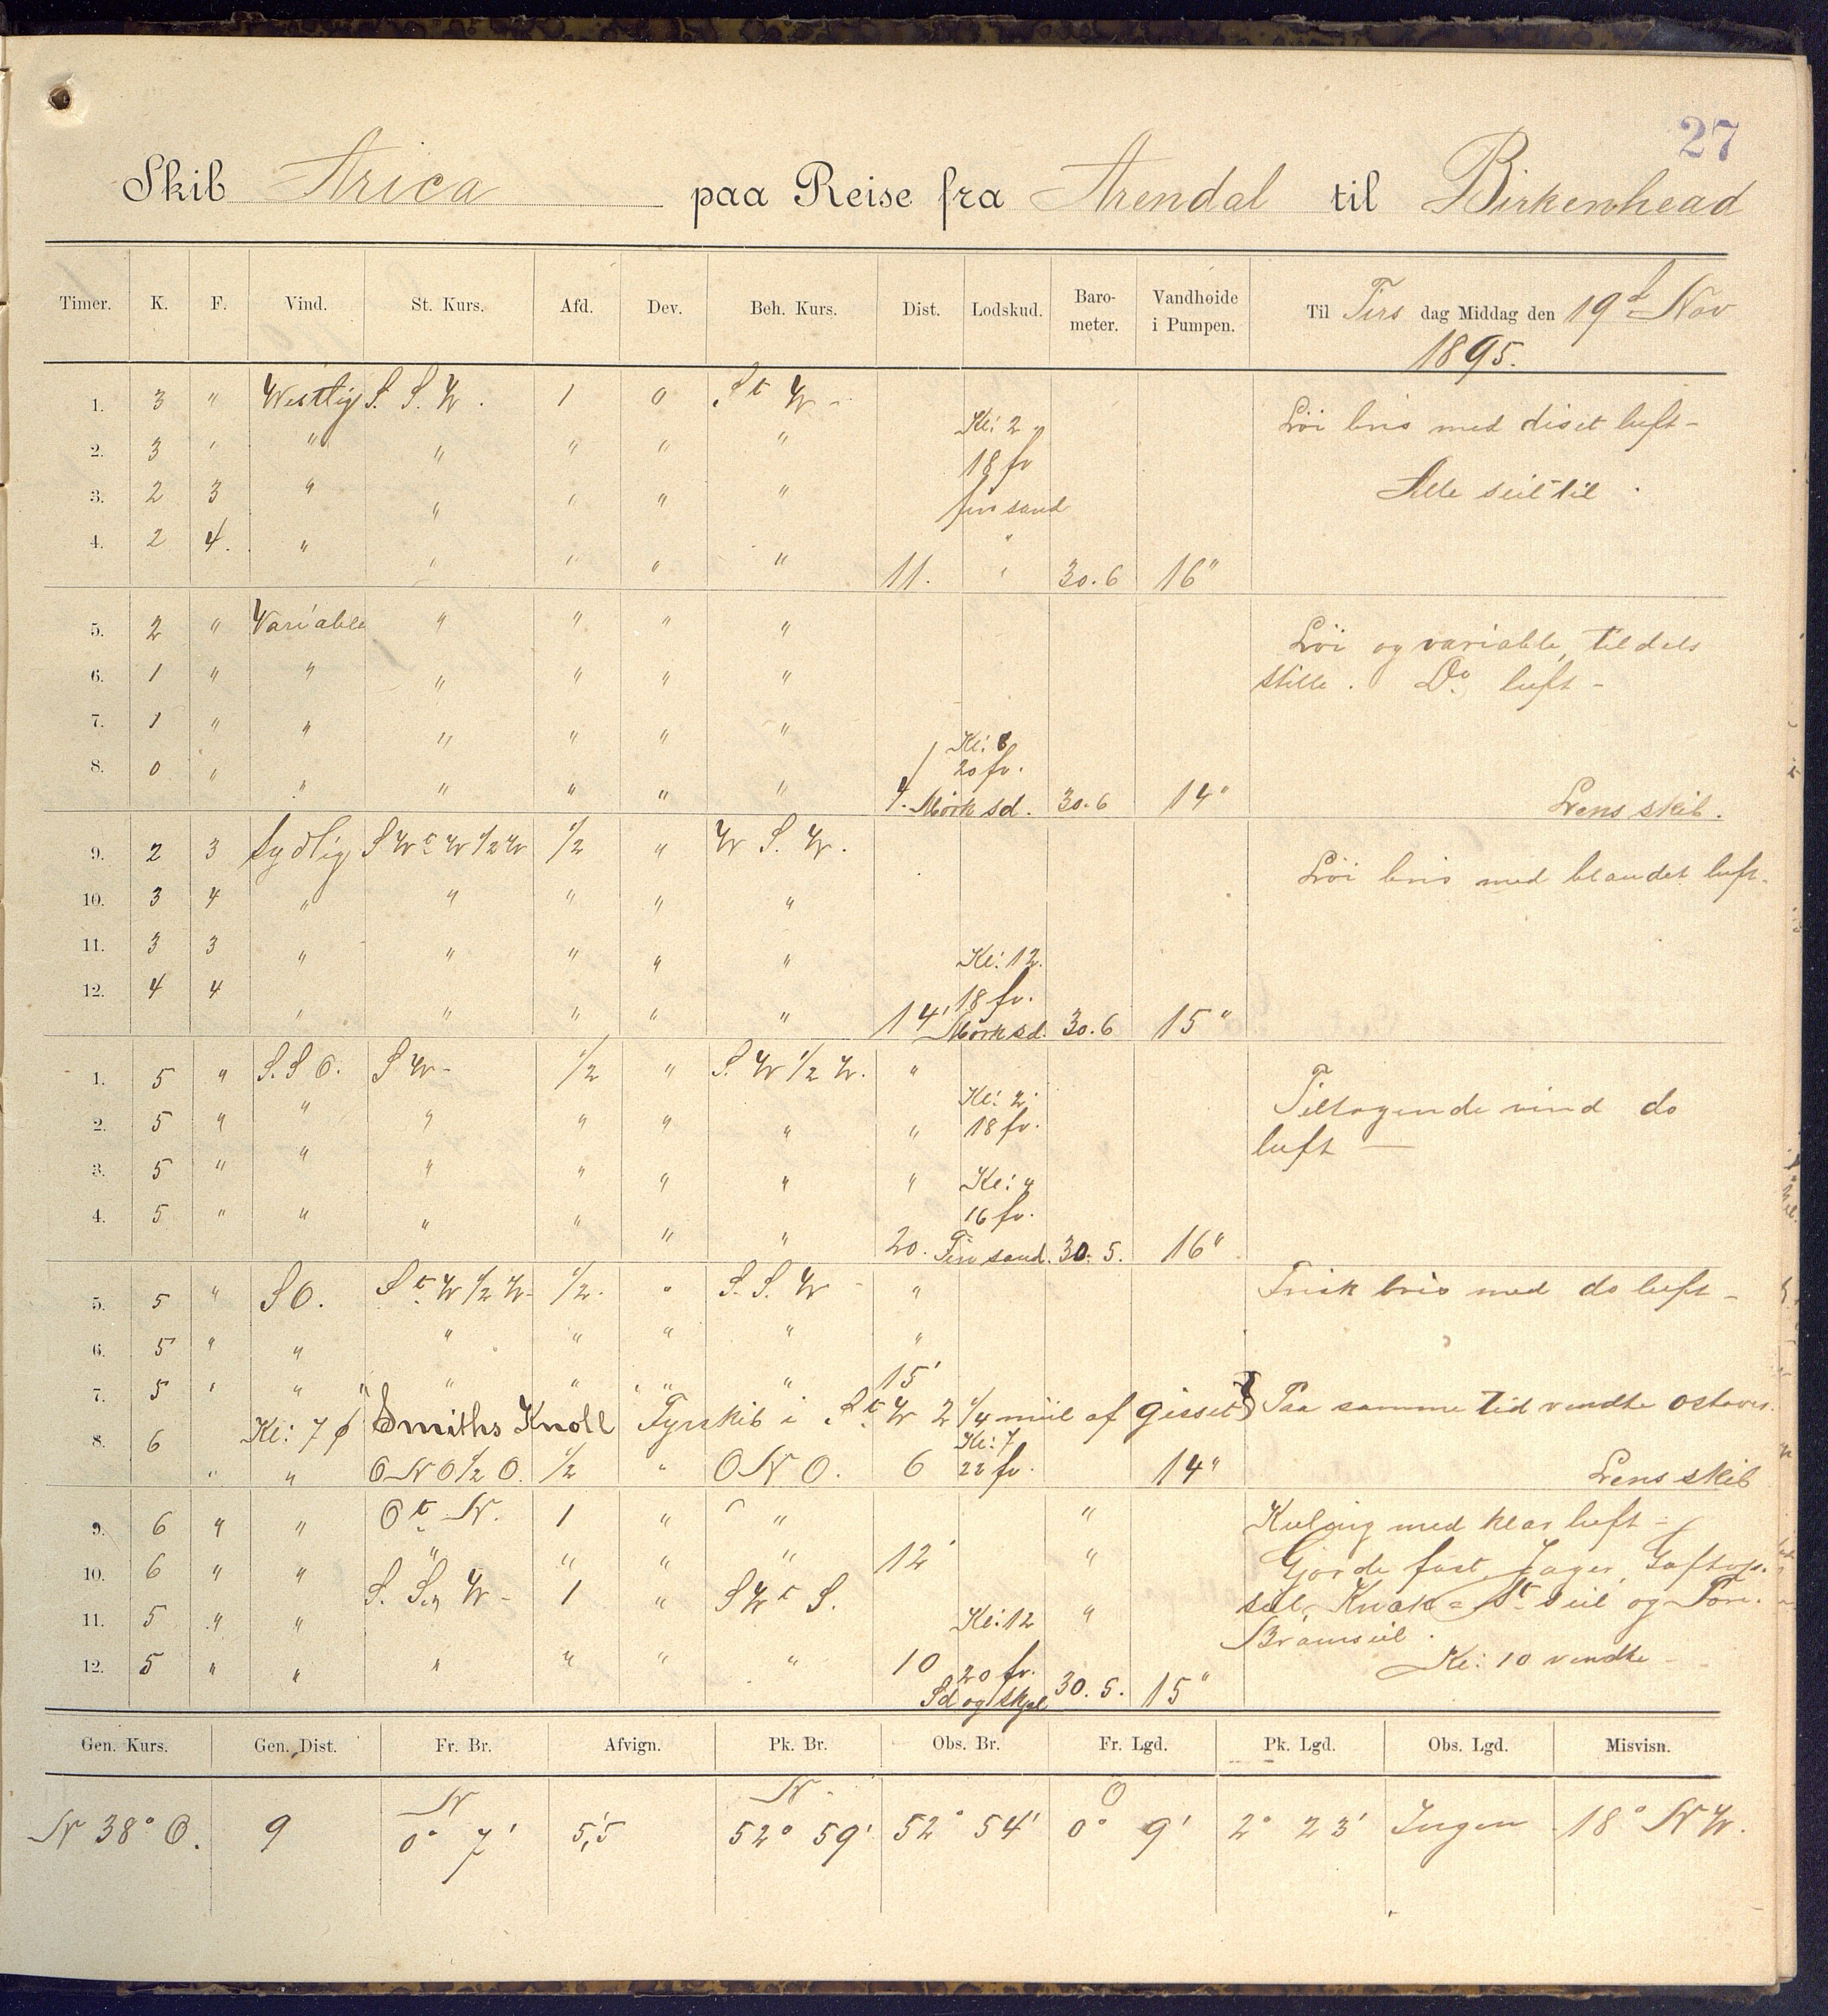 27
Skib Arica paa Reise fra Arendal til Birkenhead
Timer. K. F. Vind. St. Kurs. Afd. Dev. Beh. Kurs. Dist. Lodskud. Baro-meter. Vandhøide i Pumpen. Til Tirs dag Middag den 19d Nov
1895.
1. 3 " Westlig S. S. W. 1 0 S t W -
Kl: 2 Löi bris med diset luft -
2. 3 " " " " " "
18 fv
3. 2 3 " " " " " fin sand Alle seil til .
4. 2 4. " " " " " 11. " 30.6 16"
5. 2 " Variable " " " "
Löi og variable, tildels
6. 1 " " " " " " stille. Do luft -
7. 1 " " " " " "
Kl: 8
8. 0 " " " " " " 4. 20 fv.
Mörk sd. 30.6 14" Lens skib.
9. 2 3 Sydlig S W t W 1/2 W 1/2 " W S. W.
Löi bris med blandet luft -
10. 3 4 " " " " "
11. 3 3 " " " " " Kl: 12.
12. 4 4 " " " " " 14' 18 fv.
Mörk sd. 30.6 15"
1. 5 " S. S O. S W - 1/2 " S. W 1/2 W. "
Kl: 2. Tiltagende vind do
2. 5 " " " " " " " 18 fv.
luft —
3. 5 " " " " " " " Kl: 4
4. 5 " " " " " " 20. 16 fv.
Fin sand. 30. 5. 16"
5. 5 " S O. S t W 1/2 W - 1/2. " S. S. W - " Frisk bris med do luft -
6. 5 " " " " " " "
7. 5 " " " " " " 15'
Kl: 7 Smiths Knoll Fyrskib i S t W 2 1/4 miil af gisset } Paa samme tid vendte ostover.
8. 6 Kl: 7
" " O N O 1/2 O. 1/2 " O N O. 6 22 fv. 14" Lens skib
9. 6 " " O t N. 1 " " " Kuling med klar luft -
10. 6 " " " " " " 12' " Gjorde fast Jager, Gaftop-
11. 5 " " S. S. W - 1 " S W t S. Kl: 12 " seil, seil og For.
Bramseil.
12. 5 " " " " " " 10 20 fv. Kl: 10 vendte -
Sd og skjel 30. 5. 15"
Gen. Kurs. Gen. Dist. Fr. Br. Afvign. Pk. Br. Obs. Br. Fr. Lgd. Pk. Lgd. Obs. Lgd. Misvisn.
N N - O
N 38° O. 9 0° 7' 5,5 52° 59' 52° 54' 0° 9' 2° 23' Ingen 18° N W.